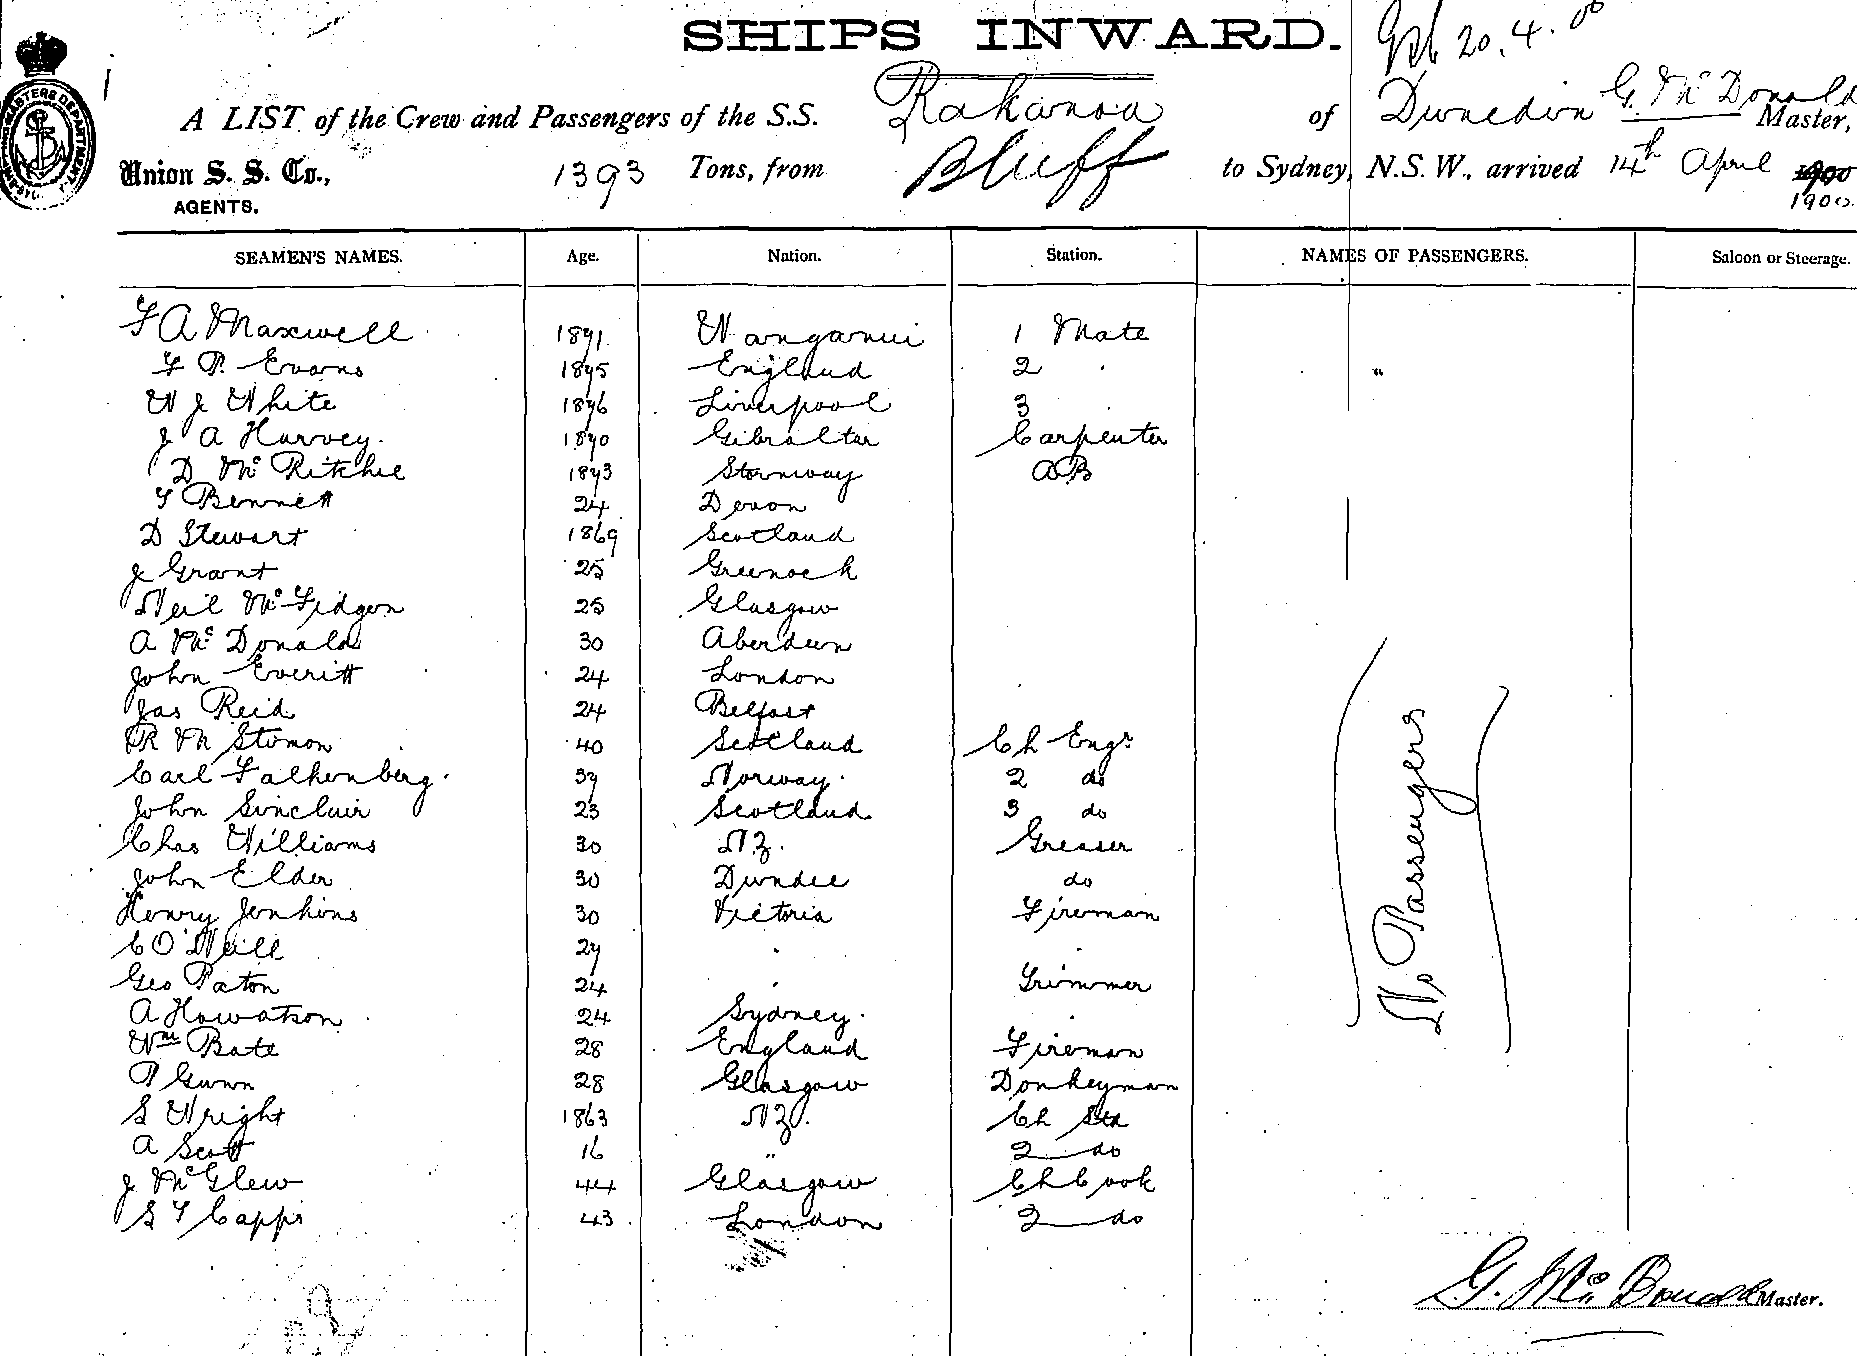 SHIPS INWARD.
20.4.00
A LIST of the Crew and Passengers of the S.S. Rakanoa of Dunedin G. McDonald Master,
Union S. S. Co., 1393 Tons, from Bluff to Sydney, N.S.W., arrived 14th April 1900
AGENTS. 1900.
SEAMEN'S NAMES. Age. Nation. Station. NAMES OF PASSENGERS. Saloon or Steerage.
F A Maxwell 1871 Wanganui 1 Mate
F P. Evans 1875 England 2 "
W J White 1876 Liverpool 3
J A Harvey. 1870 Gibraltar Carpenter
D Mc Ritchie 1873 Stornway AB
F Bennett 24 Devon
D Stewart 1869 Scotland
J Grant 25 Greenock
Neil McFidgen 25 Glasgow
A Mc Donald 30 Aberdeen
John Everitt 24 London
Jas Reid 24 Belfast
R M 40 Scotland Ch Engr
Carl Falkenberg. 37 Norway. 2 do
John Sinclair 23 Scotland 3 do
Chas Williams 30 NZ. Greaser
John Elder 30 Dundee do
Henry Jenkins 30 Victoria Fireman
C O'Neill 27
Geo Paton 24 Trimmer
A Howatson 24 Sydney.
Wm Bate 28 England Fireman
P Gunn 28 Glasgow Donkeyman
S Wright 1863 NZ. Ch Std
A Scott 16 " 2 do
J McGlew 44 Glasgow Ch Cook
S T Capps 43 London 2 do
No Passengers
G. McDonald Master.